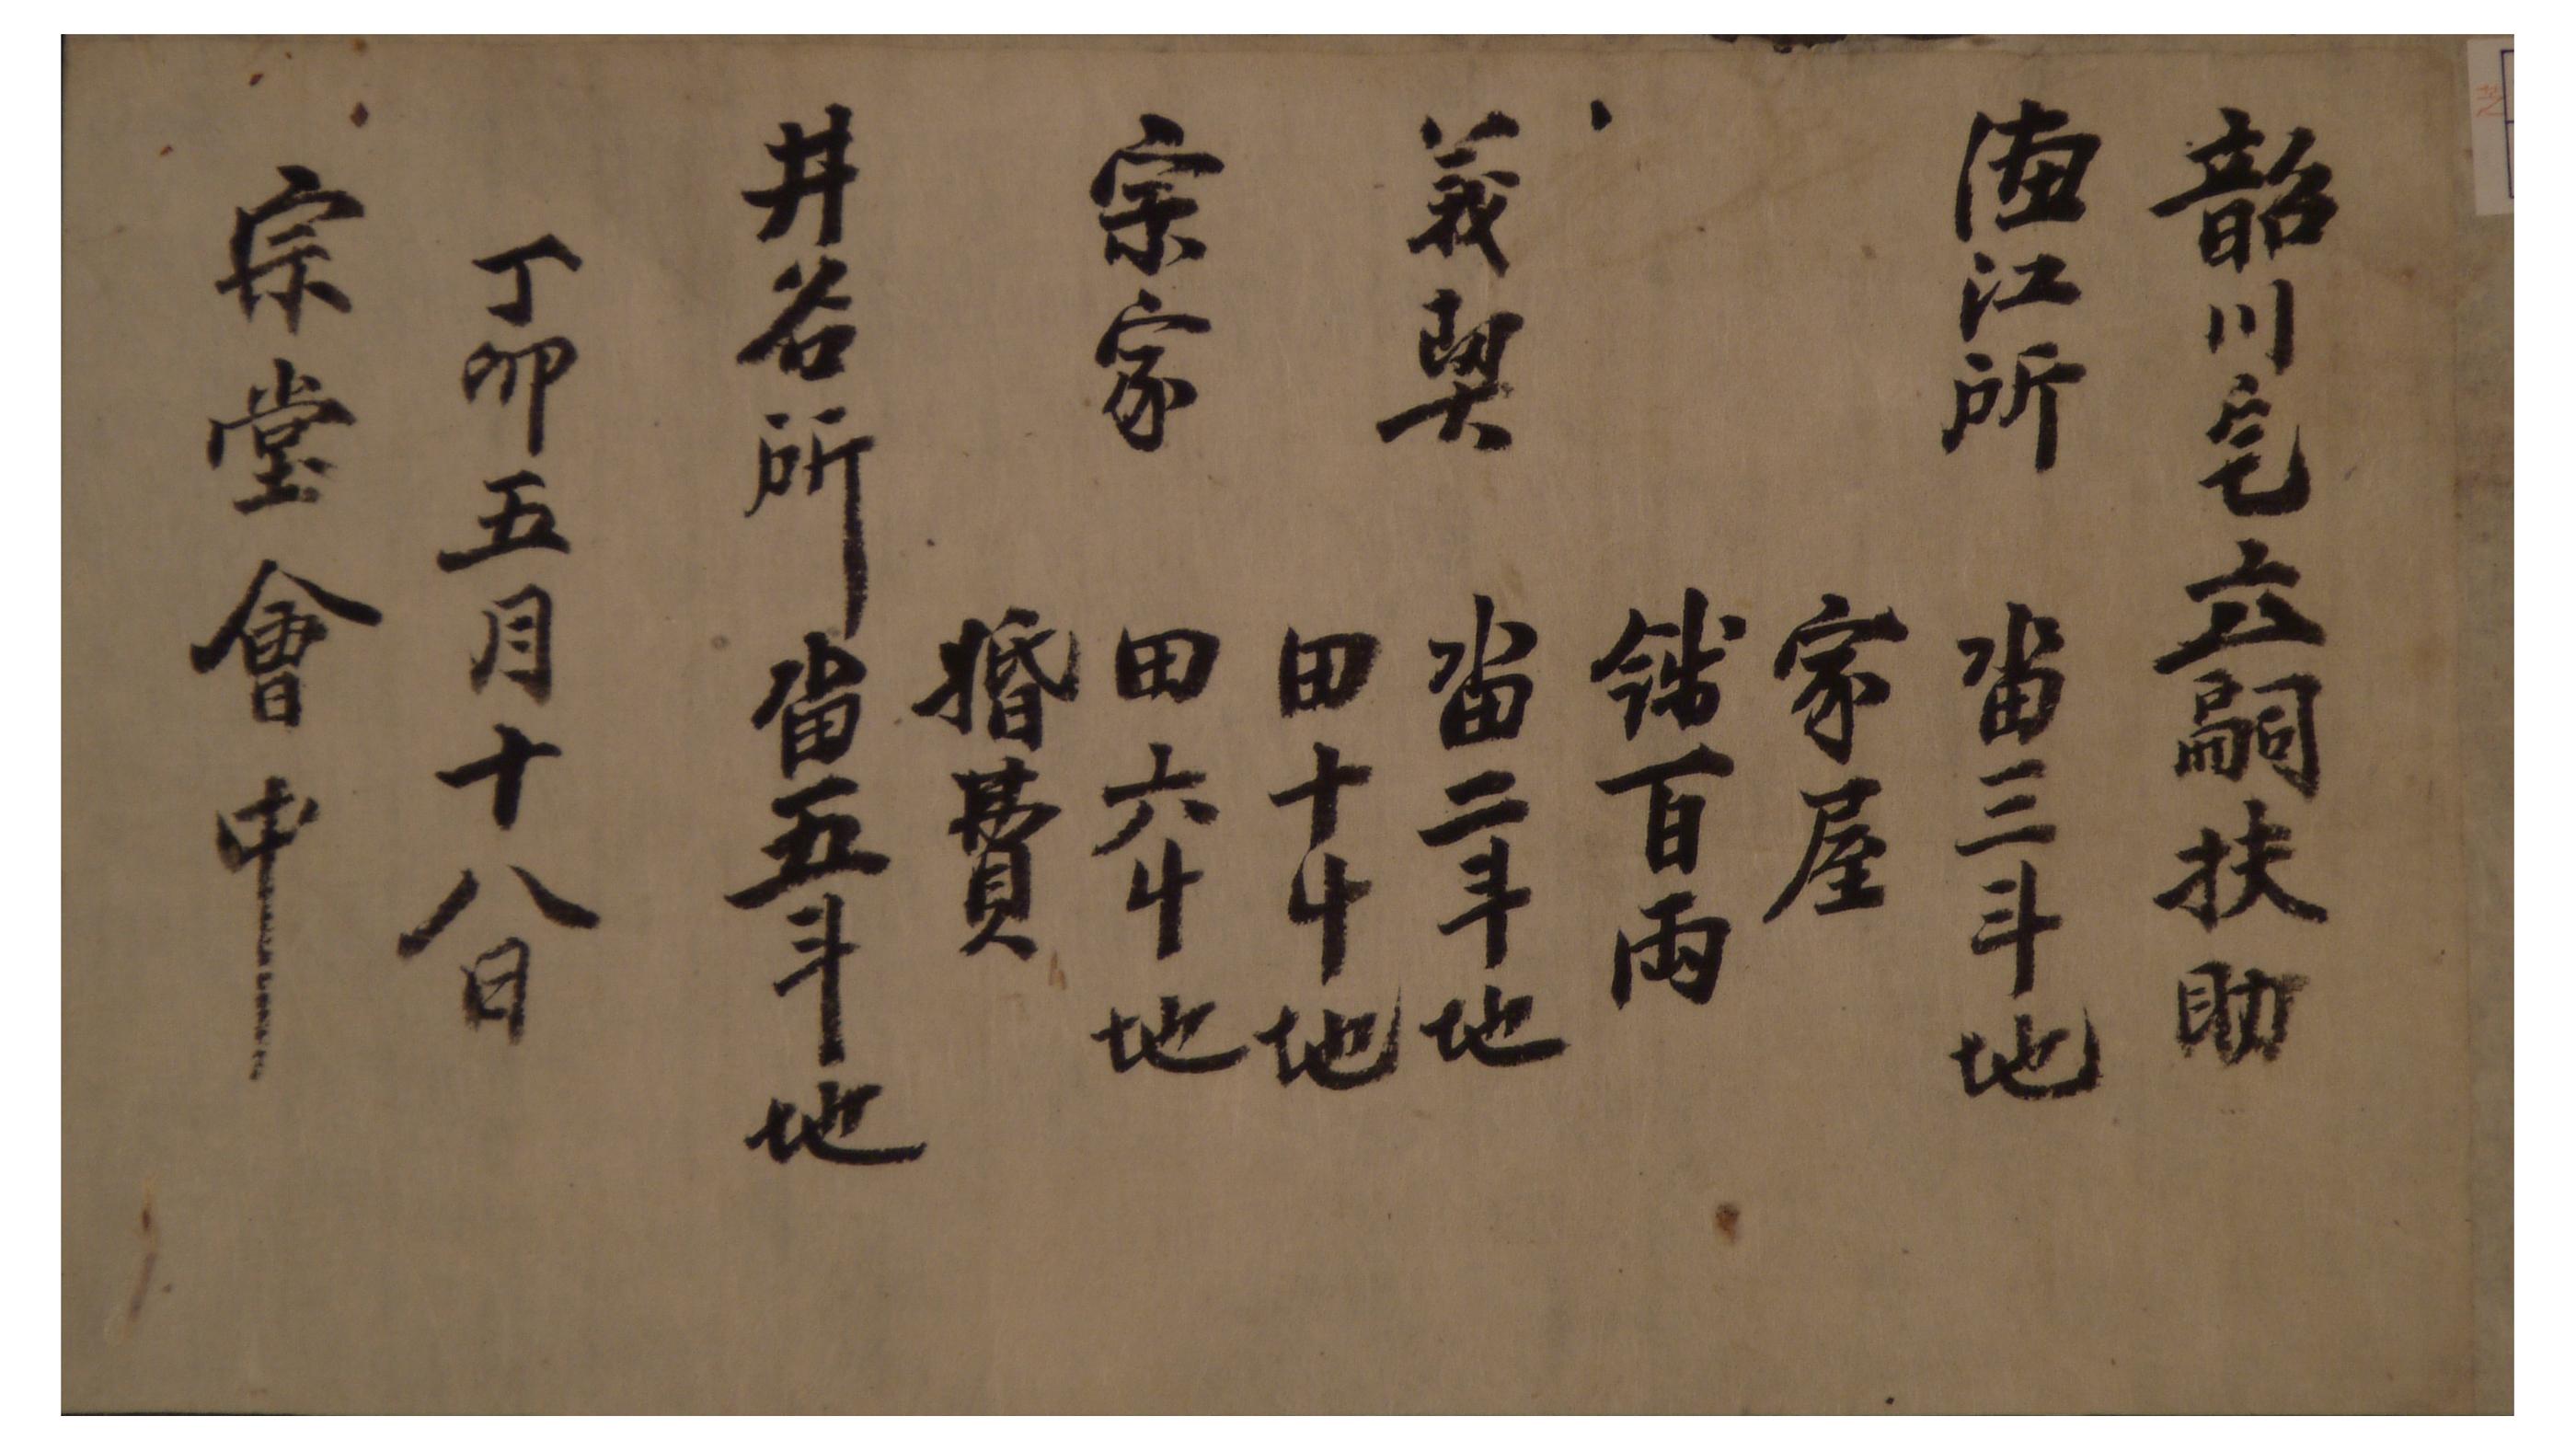 韶川宅立嗣扶助
江所 畓三斗地
家屋
錢百兩
義契 畓二斗地
田十斗地
宗家 田六斗地
婚費
井谷所 畓五斗地
丁卯五月十八日
宗堂會中